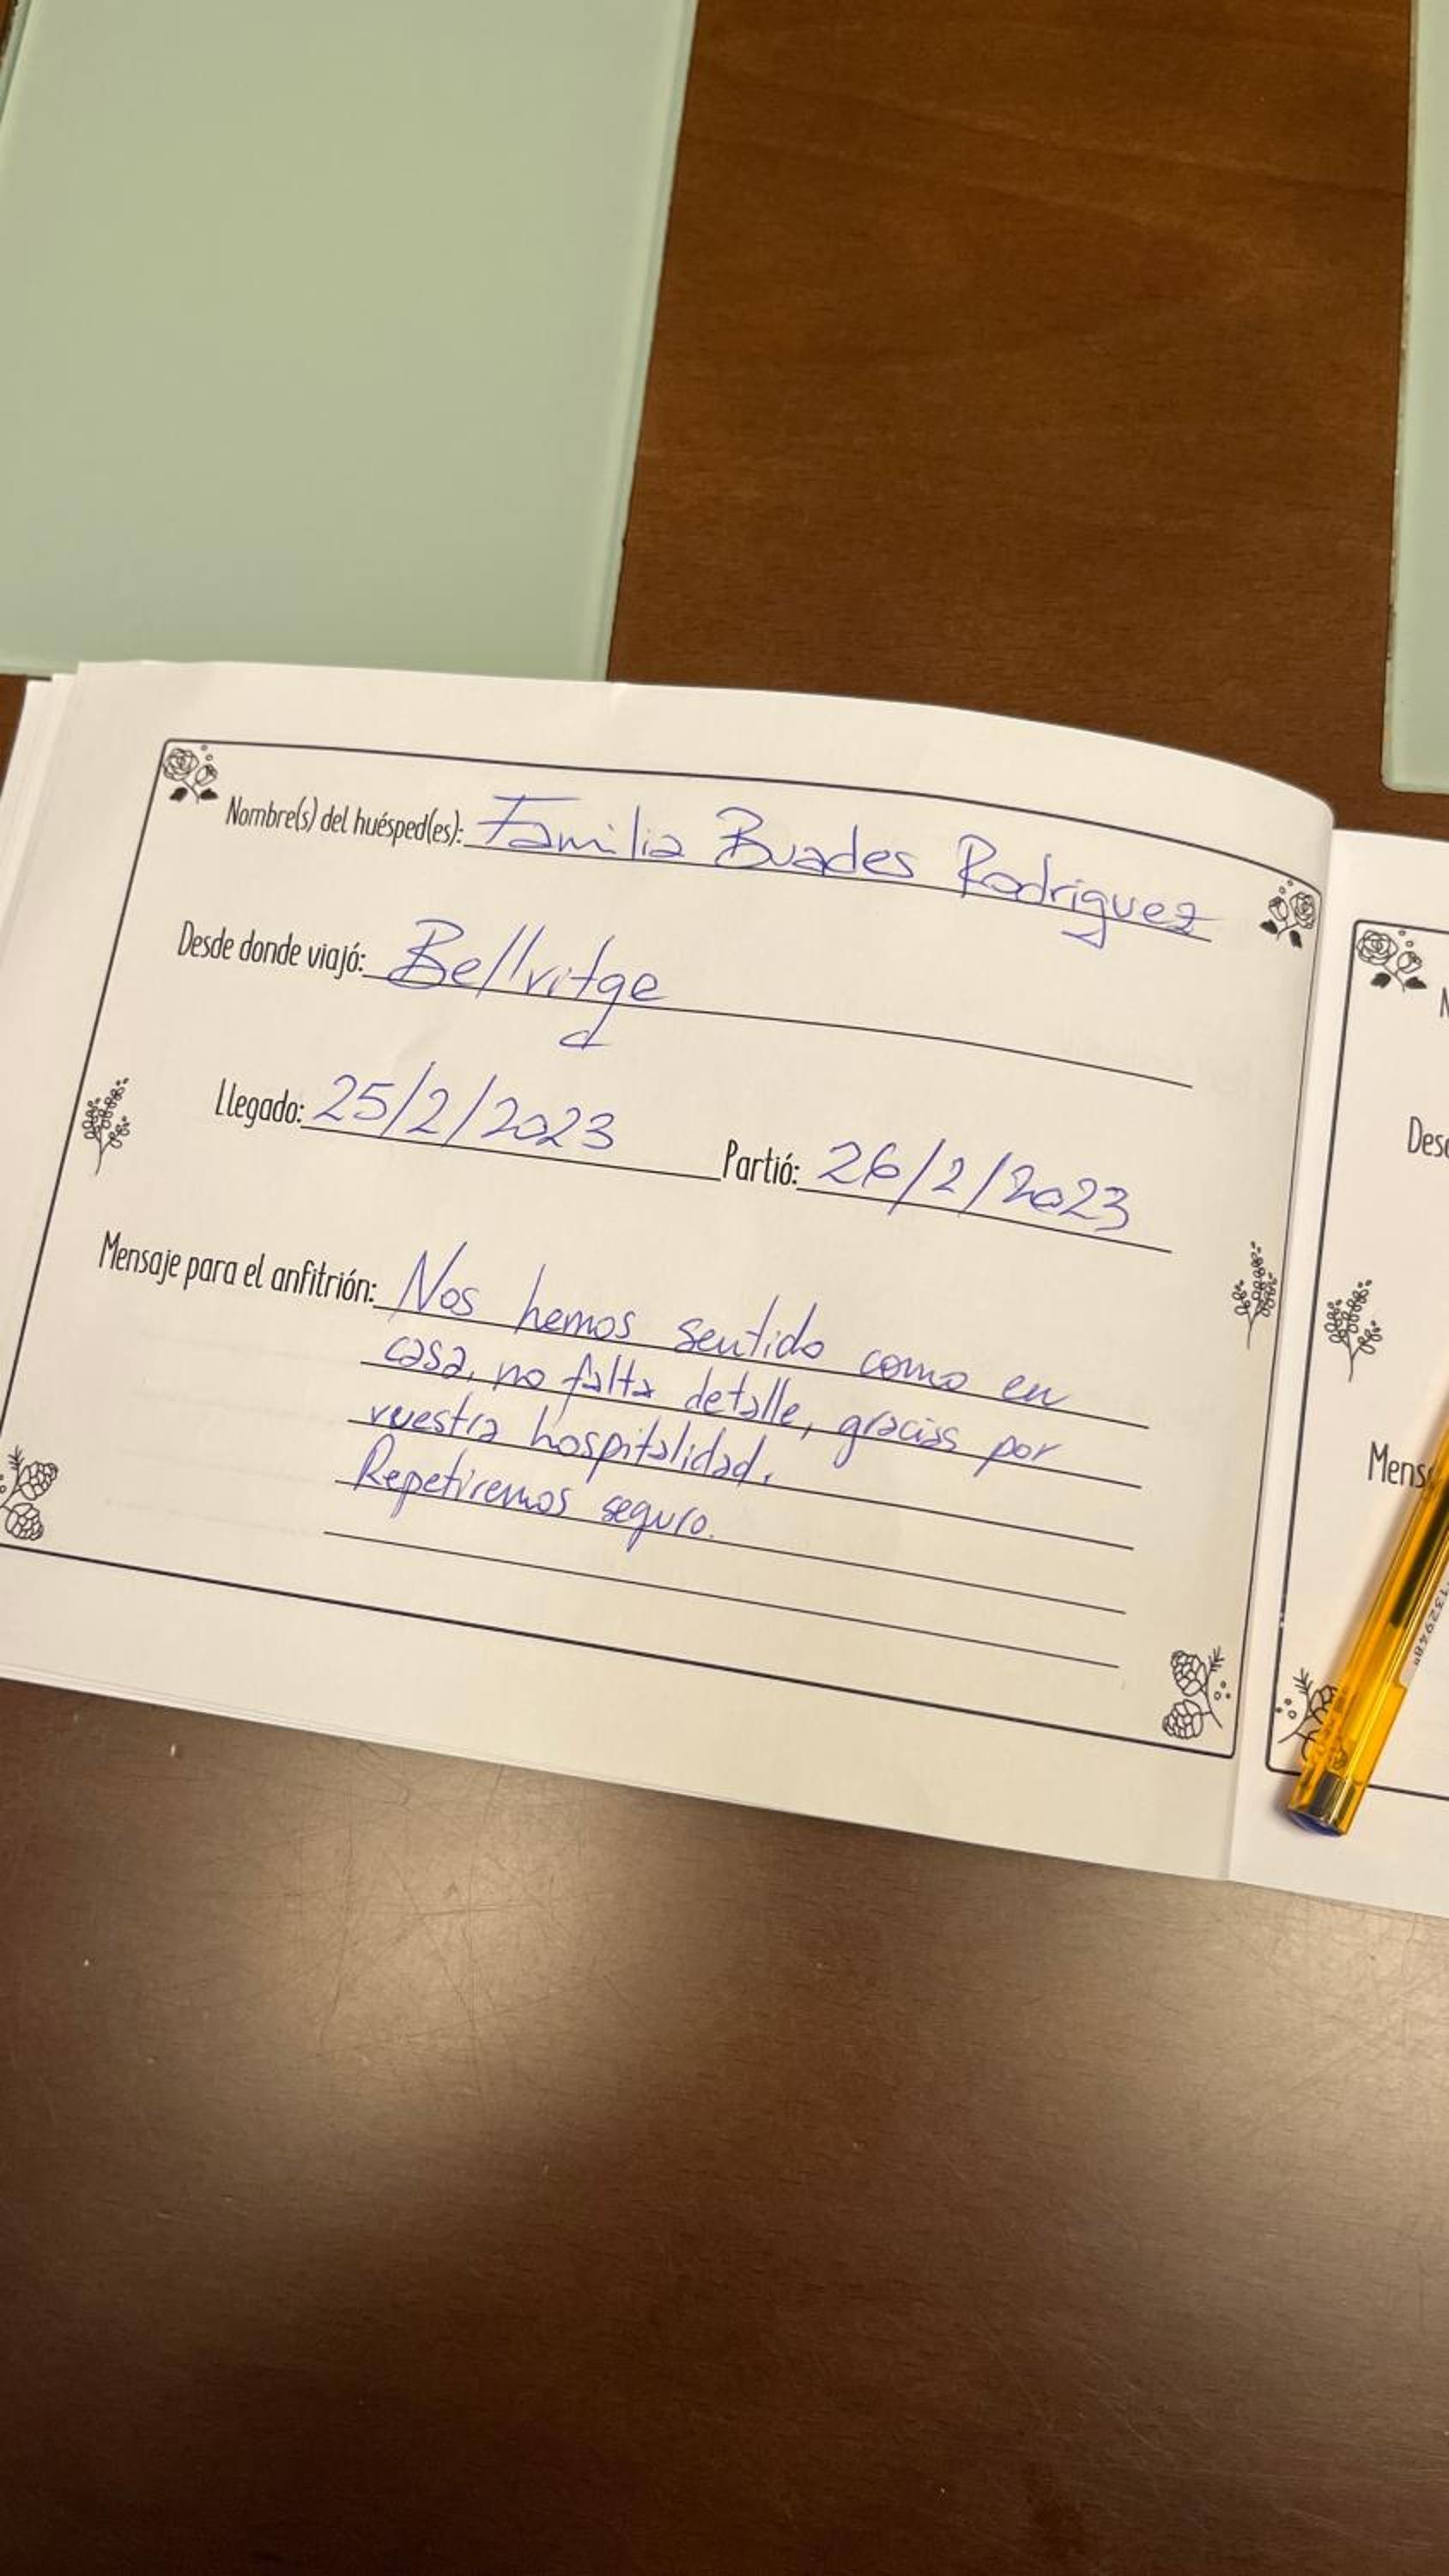 Nombre(s) del huésped(es): Familia Buades Rodriguez
Desde donde viajó: Bellvitge
Llegado: 25/2/2023 Partió: 26/2/2023
Mensaje para el anfitrión: Nos hemos sentido como en
casa, no falta detalle, gracias por
vuestra hospitalidad.
Repetiremos seguro.
N
Des
Mens